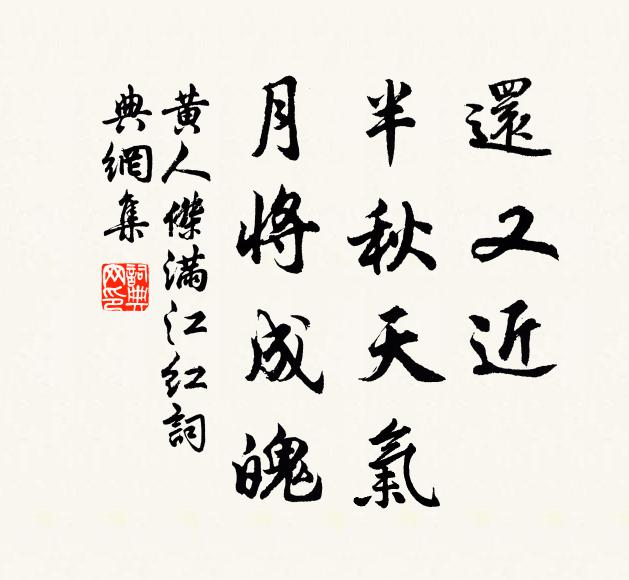 還又近
半秋天氣
月將成魄
黄人傑滿江红詞
典網集
詞典网印